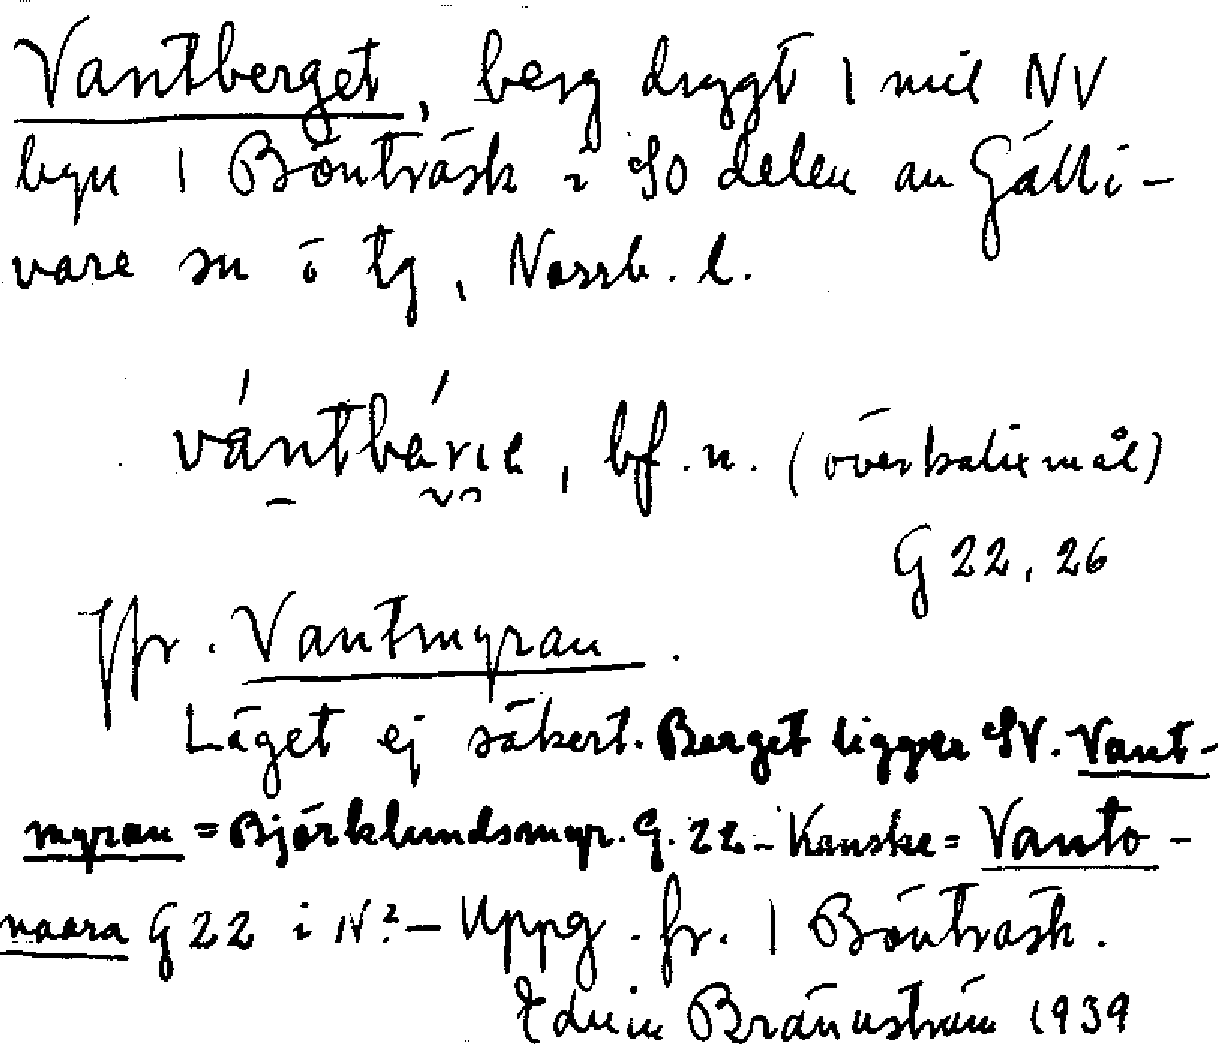 Vantberget, berg drygt 1 mil NV
byn 1 Bönträsk i SO delen av Gälli-
vare sn o tg, Norrb. l.
vántbárıe, bf. n. (överkalixmål)
G 22, 26
Jfr. Vantmyran.
Läget ej säkert. Berget ligger SV. Vant-
myran = Björklundsmyr. G. 22 - Kanske = Vanto-
vaara G 22 i N? - Uppg. fr. 1 Bönträsk.
Edvin Brännström 1939